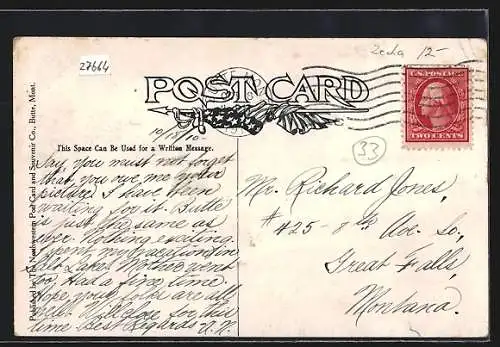 27664
2cda 12-
POST CARD
U.S. POSTAGE
TWO CENTS
10/18/10
33
This Space Can Be Used for a Written Message.
Say, you must not forget
that you owe me your
picture. I have been
waiting for it. Butte
is just the same as
ever. Nothing exciting.
Spent my vacation in
Salt Lake. Mother went
too. Had a fine time.
Hope your folks are all
well. Will close for this
time. Best Regards
Mr. Richard Jones,
# 425-8th Ave. So.,
Great Falls,
Montana.
Published by The Northwestern Post Card and Souvenir Co., Butte, Mont.